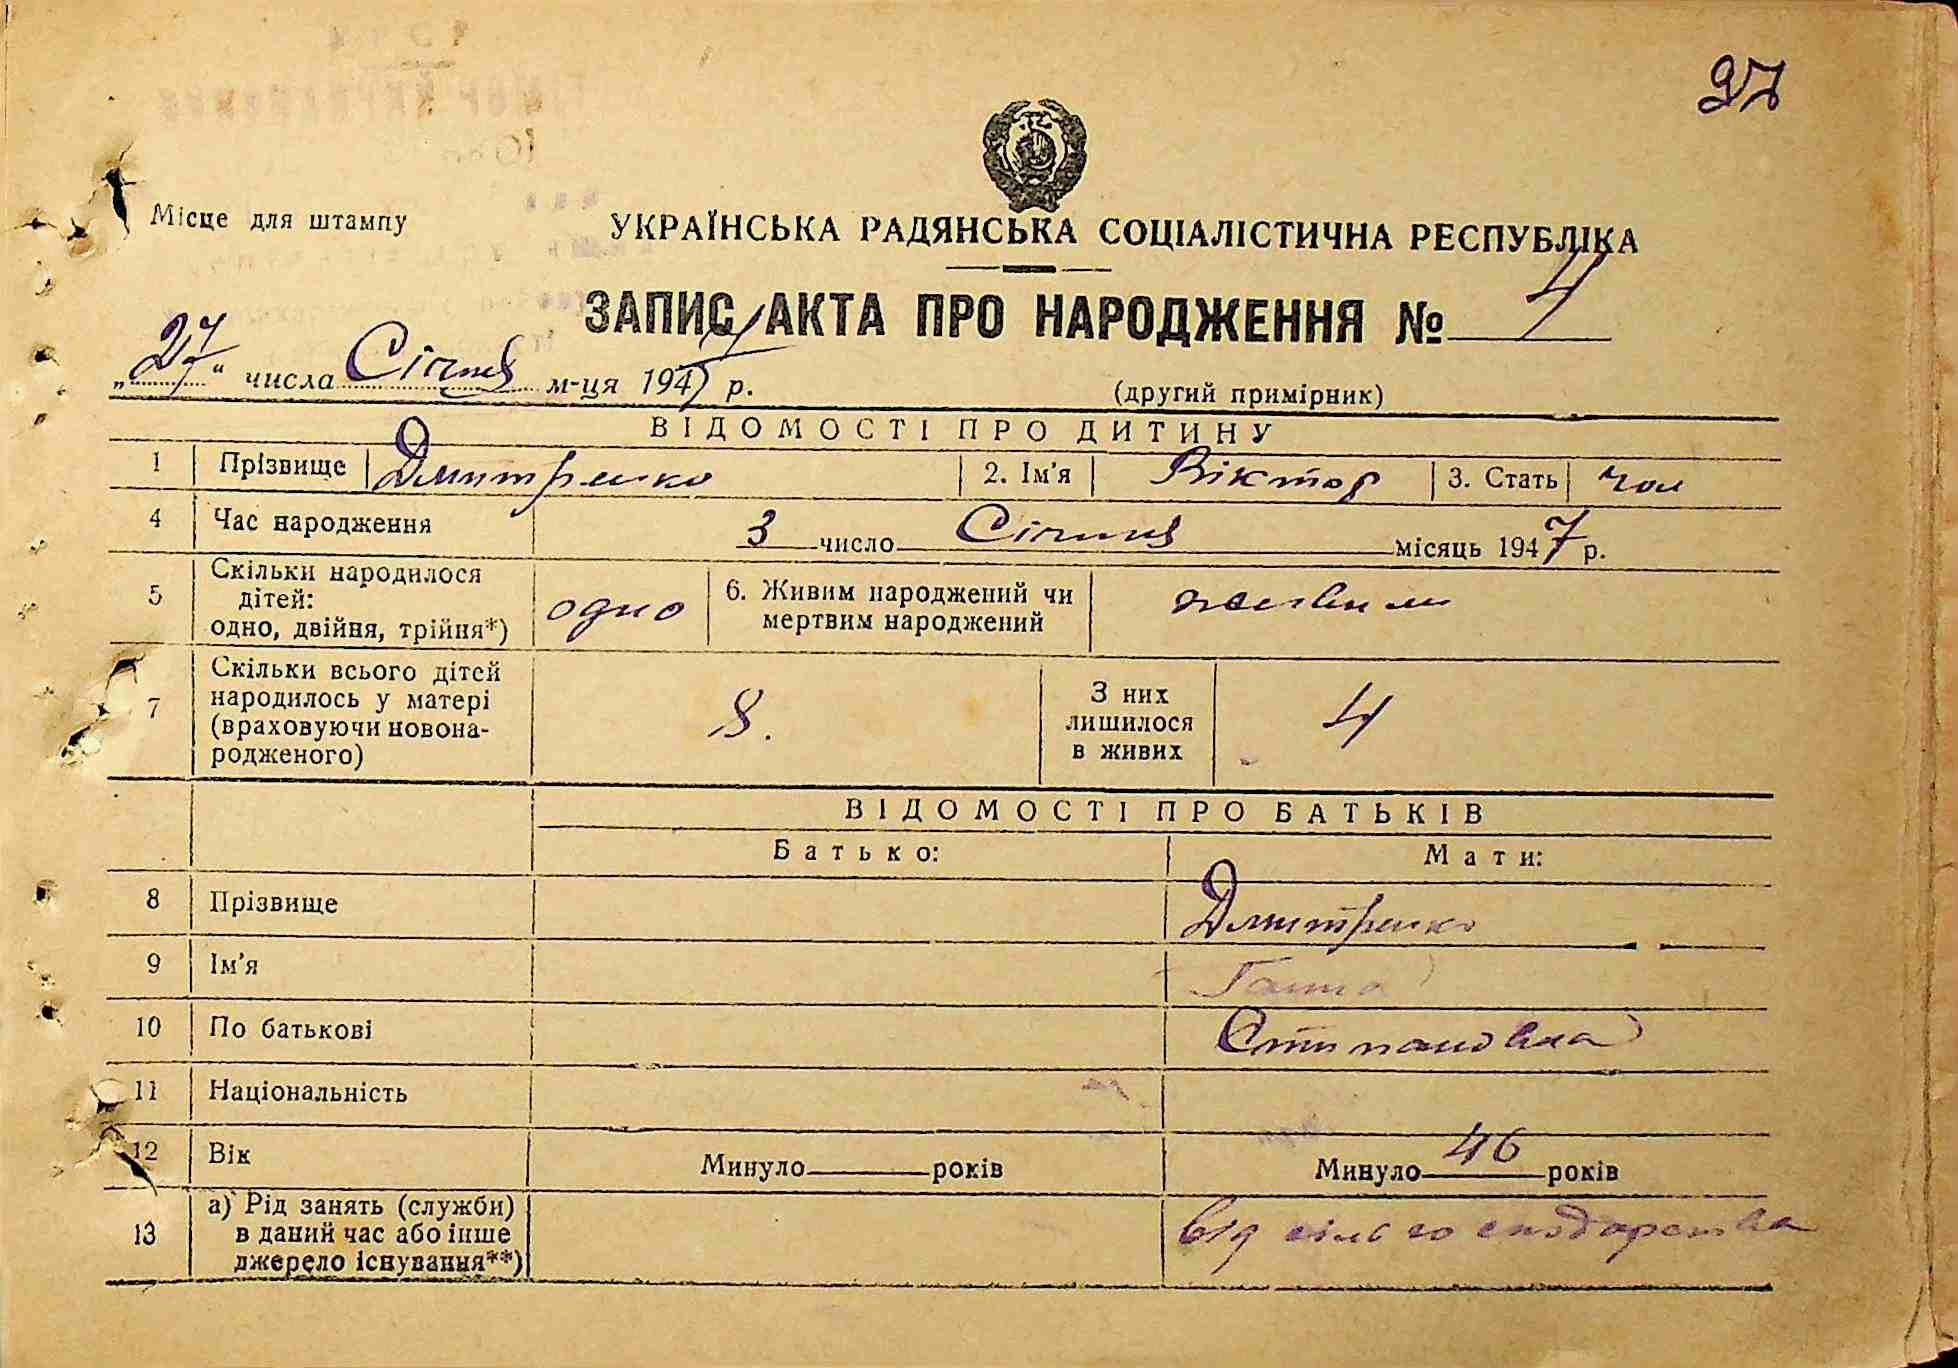 97
Місце для штампу
УКРАЇНСЬКА РАДЯНСЬКА СОЦІАЛІСТИЧНА РЕСПУБЛІКА
ЗАПИС АКТА ПРО НАРОДЖЕННЯ № 4
„27“ числа Січня м-ця 1947 р.
(другий примірник)
ВІДОМОСТІ ПРО ДИТИНУ
1 Прізвище Дмитренко 2. Ім'я Віктор 3. Стать чол
4 Час народження 3 число Січня місяць 1947 р.
5 Скільки народилося дітей: одно, двійня, трійня*) одно 6. Живим народжений чи мертвим народжений живим
7 Скільки всього дітей народилось у матері (враховуючи новонародженого) 8. З них лишилося в живих 4
ВІДОМОСТІ ПРО БАТЬКІВ
Батько: Мати:
8 Прізвище Дмитренко
9 Ім'я Ганна
10 По батькові Степановна
11 Національність
12 Вік Минуло років Минуло 46 років
13 а) Рід занять (служби) в даний час або інше джерело існування**) від сільгосподарства